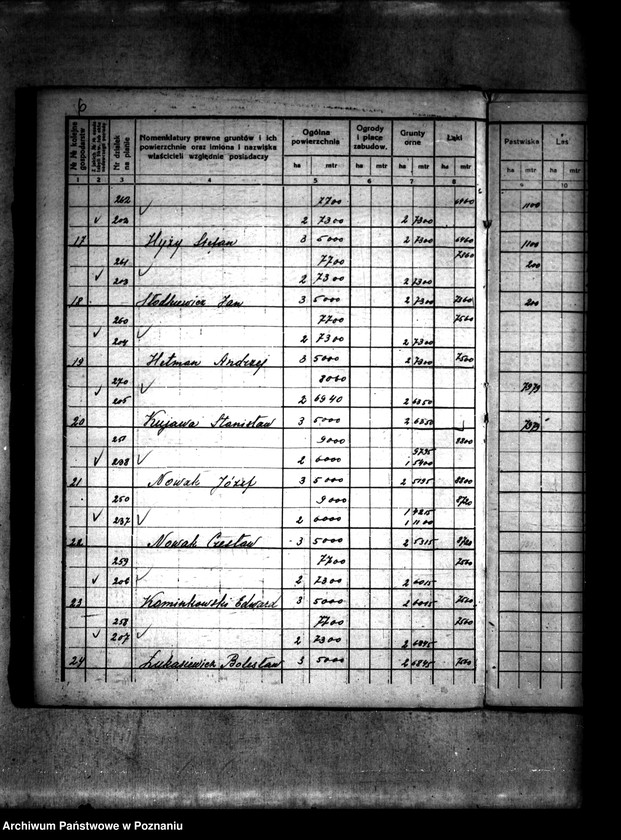 6
№ № kolejne gospodarstw
Nr działek na planie
Nomenklatury prawne gruntów i ich powierzchnie oraz imiona i nazwiska właścicieli względnie posiadaczy
Ogólna powierzchnia
Ogrody i place zabudow.
Grunty orne
Łąki
Pastwiska
Las
ha mtr ha mtr ha mtr ha mtr ha mtr ha
1 2 3 4 5 6 7 8 9 10
262 7700 6960 1100
202 2 7300 2 7300
17 Hyży Stefan 3 5000 2 7300 6960 1100
261 7700 7560 200
203 2 7300 2 7300
18 Słodkiewicz Jan 3 5000 2 7300 7560 200
260 7700 7560
204 2 7300 2 7300
19 Hetman Andrzej 3 5000 2 7300 7500
270 8060 7979
205 2 6940 2 6850
20 Kujawa Stanisław 3 5000 2 6850 7979
251 9000 8800
9795
238 2 6000 1 5400
21 Nowak Józef 3 5000 2 5195 8800
250 9000 8720
1 4215
237 2 6000 1 1100
22 Nowak Czesław 3 5000 2 5315 8720
259 7700 7500
206 2 7300 2 6015
23 Kaminkowski Edward 3 5000 2 6015 7500
258 7700 7500
207 2 7300 2 6895
24 Łukasiewicz Bolesław 3 5000 2 6895 7500
Archiwum Państwowe w Poznaniu